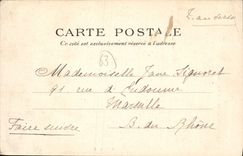 CARTE POSTALE
Ce côté est exclusivement réservé à l'adresse
63
Mademoiselle Jane
91 rue d'Endoume
Marseille
Faire suivre
B. du Rhône